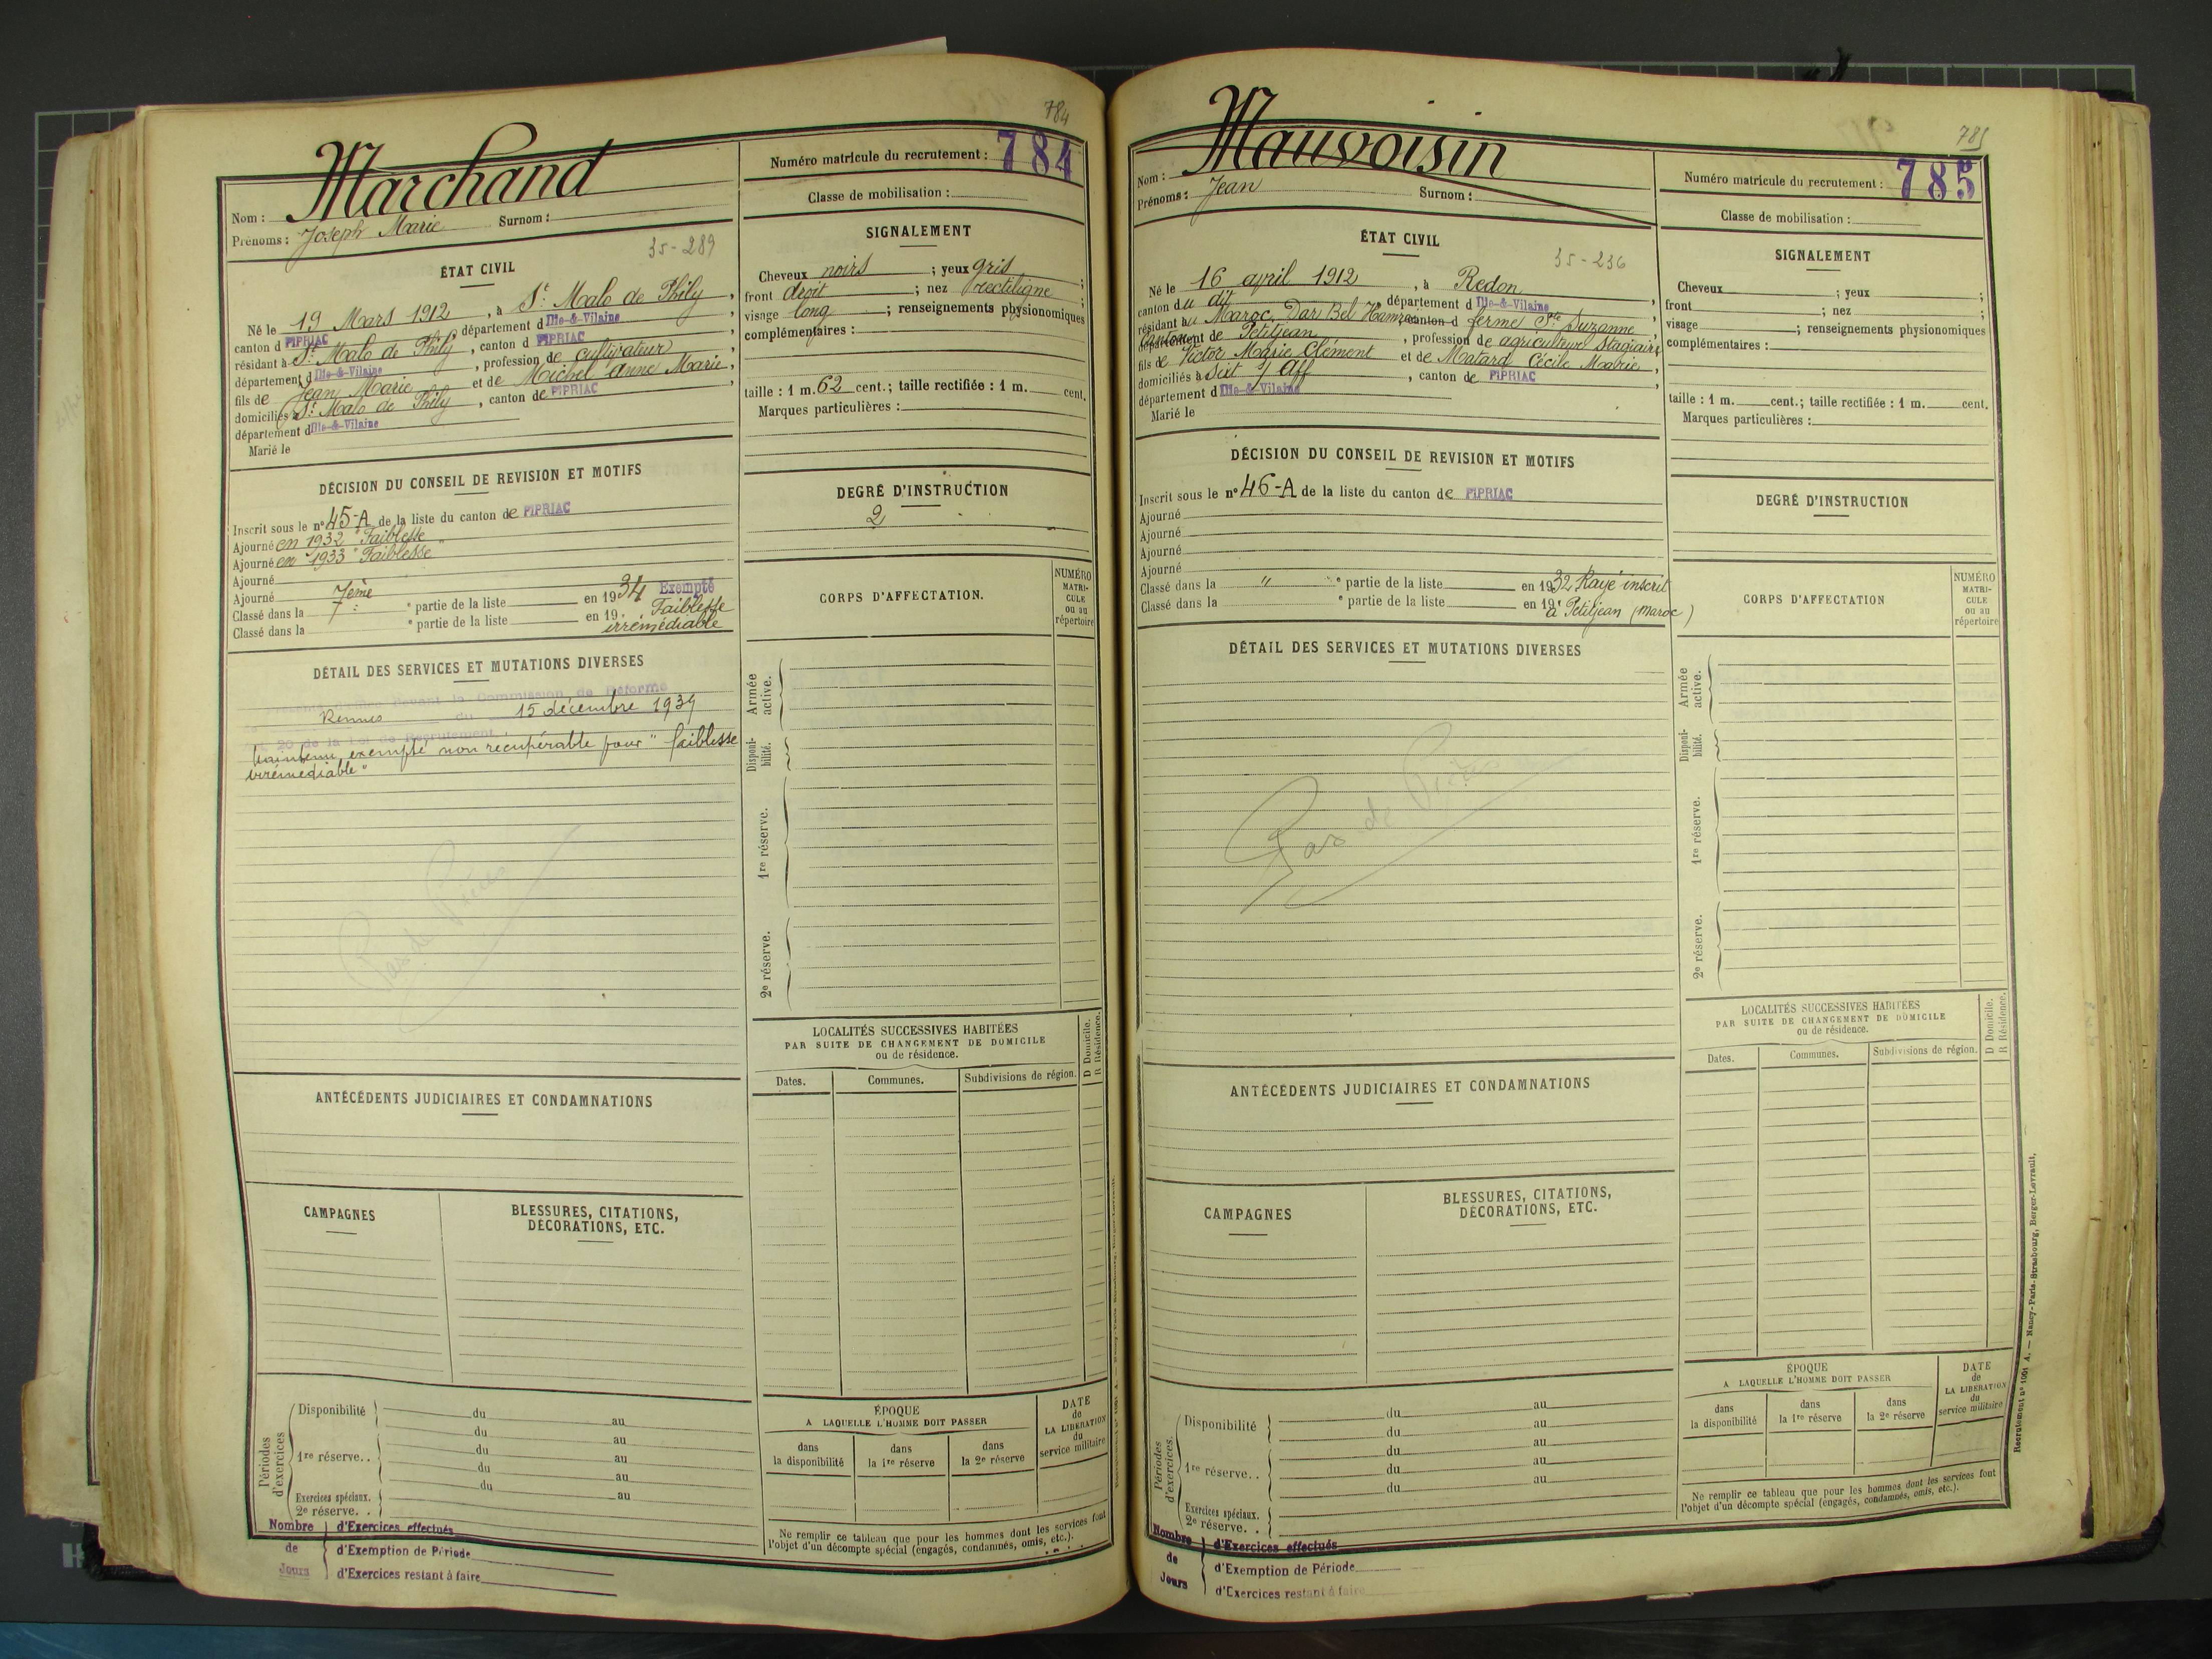 784
Marchand
Nom :
Prénoms : Joseph Marie Surnom :
Numéro matricule du recrutement : 784
Classe de mobilisation :
35-289
ÉTAT CIVIL
Né le 19 Mars 1912, à St Malo de Phily,
canton d PIPRIAC, département d Ille-&-Vilaine,
résidant à St Malo de Phily, canton d PIPRIAC,
département d Ille-&-Vilaine, profession de cultivateur,
fils de Jean Marie et de Michel Anne Marie,
domiciliés à St Malo de Phily, canton de PIPRIAC,
département d Ille-&-Vilaine
Marié le
SIGNALEMENT
Cheveux noirs ; yeux gris ;
front droit ; nez rectiligne ;
visage long ; renseignements physionomiques
complémentaires :
taille : 1 m. 62 cent.; taille rectifiée : 1 m. cent.
Marques particulières :
DÉCISION DU CONSEIL DE REVISION ET MOTIFS
Inscrit sous le n° 45-A de la liste du canton de PIPRIAC
Ajourné en 1932 "Faiblesse
Ajourné en 1933 "Faiblesse"
Ajourné
Ajourné
Classé dans la 7ème e partie de la liste en 1934 Exempté
Classé dans la e partie de la liste en 19 Faiblesse
irrémédiable
DEGRÉ D'INSTRUCTION
2
CORPS D'AFFECTATION.
NUMÉRO
MATRI-
CULE
ou au
répertoire
DÉTAIL DES SERVICES ET MUTATIONS DIVERSES
devant la Commission de Réforme
Rennes du 15 décembre 1939
20 de la Loi de Recrutement
Maintenu exempté non récupérable pour "faiblesse
irrémédiable"
Pas de Pièces
Armée
active.
Disponi-
bilité.
1re réserve.
2e réserve.
LOCALITÉS SUCCESSIVES HABITÉES
PAR SUITE DE CHANGEMENT DE DOMICILE
ou de résidence.
D Domicile.
R Résidence.
Dates.
Communes.
Subdivisions de région.
ANTÉCÉDENTS JUDICIAIRES ET CONDAMNATIONS
CAMPAGNES
BLESSURES, CITATIONS,
DÉCORATIONS, ETC.
Périodes
d'exercices
Disponibilité
du au
du au
1re réserve. .
du au
du au
du au
Exercices spéciaux.
2e réserve. .
Nombre de Jours
d'Exercices effectués
d'Exemption de Période
d'Exercices restant à faire
ÉPOQUE
A LAQUELLE L'HOMME DOIT PASSER
dans
la disponibilité
dans
la 1re réserve
dans
la 2e réserve
DATE
de
LA LIBÉRATION
du
service militaire
Ne remplir ce tableau que pour les hommes dont les services font
l'objet d'un décompte spécial (engagés, condamnés, omis, etc.).
785
Mauvoisin
Nom :
Prénoms : Jean Surnom :
Numéro matricule du recrutement : 785
Classe de mobilisation :
35-236
ÉTAT CIVIL
Né le 16 april 1912, à Redon,
canton du dit, département d Ille-&-Vilaine,
résidant au Maroc, Dar Bel Hamza canton d ferme Ste Suzanne,
département de Petitjean, profession de agriculteur stagiaire,
fils de Victor Marie Clément et de Matard Cécile Marie,
domiciliés à Sixt s/ Aff, canton de PIPRIAC,
département d Ille-&-Vilaine
Marié le
SIGNALEMENT
Cheveux ; yeux ;
front ; nez ;
visage ; renseignements physionomiques
complémentaires :
taille : 1 m. cent.; taille rectifiée : 1 m. cent.
Marques particulières :
DÉCISION DU CONSEIL DE REVISION ET MOTIFS
Inscrit sous le n° 46-A de la liste du canton de PIPRIAC
Ajourné
Ajourné
Ajourné
Ajourné
Classé dans la " e partie de la liste en 1932 Rayé inscrit
Classé dans la e partie de la liste en 19 à Petitjean (Maroc)
DEGRÉ D'INSTRUCTION
CORPS D'AFFECTATION
NUMÉRO
MATRI-
CULE
ou au
répertoire
DÉTAIL DES SERVICES ET MUTATIONS DIVERSES
Pas de Pièces
Armée
active.
Disponi-
bilité.
1re réserve.
2e réserve.
LOCALITÉS SUCCESSIVES HABITÉES
PAR SUITE DE CHANGEMENT DE DOMICILE
ou de résidence.
D Domicile.
R Résidence.
Dates.
Communes.
Subdivisions de région.
ANTÉCÉDENTS JUDICIAIRES ET CONDAMNATIONS
CAMPAGNES
BLESSURES, CITATIONS,
DÉCORATIONS, ETC.
Périodes
d'exercices.
Disponibilité
du au
du au
1re réserve. .
du au
du au
du au
Exercices spéciaux.
2e réserve. .
Nombre de Jours
d'Exercices effectués
d'Exemption de Période
d'Exercices restant à faire
ÉPOQUE
A LAQUELLE L'HOMME DOIT PASSER
dans
la disponibilité
dans
la 1re réserve
dans
la 2e réserve
DATE
de
LA LIBÉRATION
du
service militaire
Ne remplir ce tableau que pour les hommes dont les services font
l'objet d'un décompte spécial (engagés, condamnés, omis, etc.).
Recrutement n° 1001 A. — Nancy-Paris-Strasbourg, Berger-Levrault.